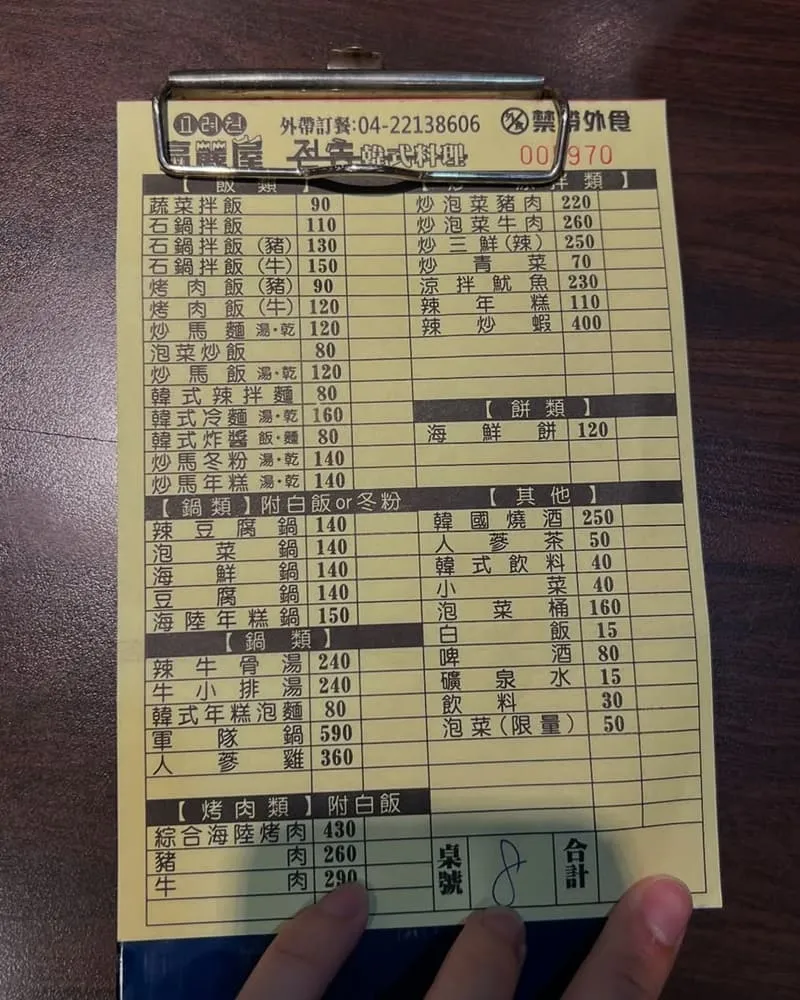 고려원 外帶訂餐:04-22138606 禁帶外食
高麗屋 韓式料理 970
【 飯 類 】
蔬菜拌飯 90
石鍋拌飯 110
石鍋拌飯(豬) 130
石鍋拌飯(牛) 150
烤肉飯(豬) 90
烤肉飯(牛) 120
炒馬麵 湯·乾 120
泡菜炒飯 80
炒馬飯 湯·乾 120
韓式辣拌麵 80
韓式冷麵 湯·乾 160
韓式炸醬 飯·麵 80
炒馬冬粉 湯·乾 140
炒馬年糕 湯·乾 140
【鍋類】附白飯or冬粉
辣豆腐鍋 140
泡菜鍋 140
海鮮鍋 140
豆腐鍋 140
海陸年糕鍋 150
【 鍋 類 】
辣牛骨湯 240
牛小排湯 240
韓式年糕泡麵 80
軍隊鍋 590
人蔘雞 360
【烤肉類】附白飯
綜合海陸烤肉 430
豬肉 260
牛肉 290
拌類 】
炒泡菜豬肉 220
炒泡菜牛肉 260
炒三鮮(辣) 250
炒青菜 70
涼拌魷魚 230
辣年糕 110
辣炒蝦 400
【 餅 類 】
海鮮餅 120
【 其 他 】
韓國燒酒 250
人蔘茶 50
韓式飲料 40
小菜 40
泡菜桶 160
白飯 15
啤酒 80
礦泉水 15
飲料 30
泡菜(限量) 50
桌號 8 合計